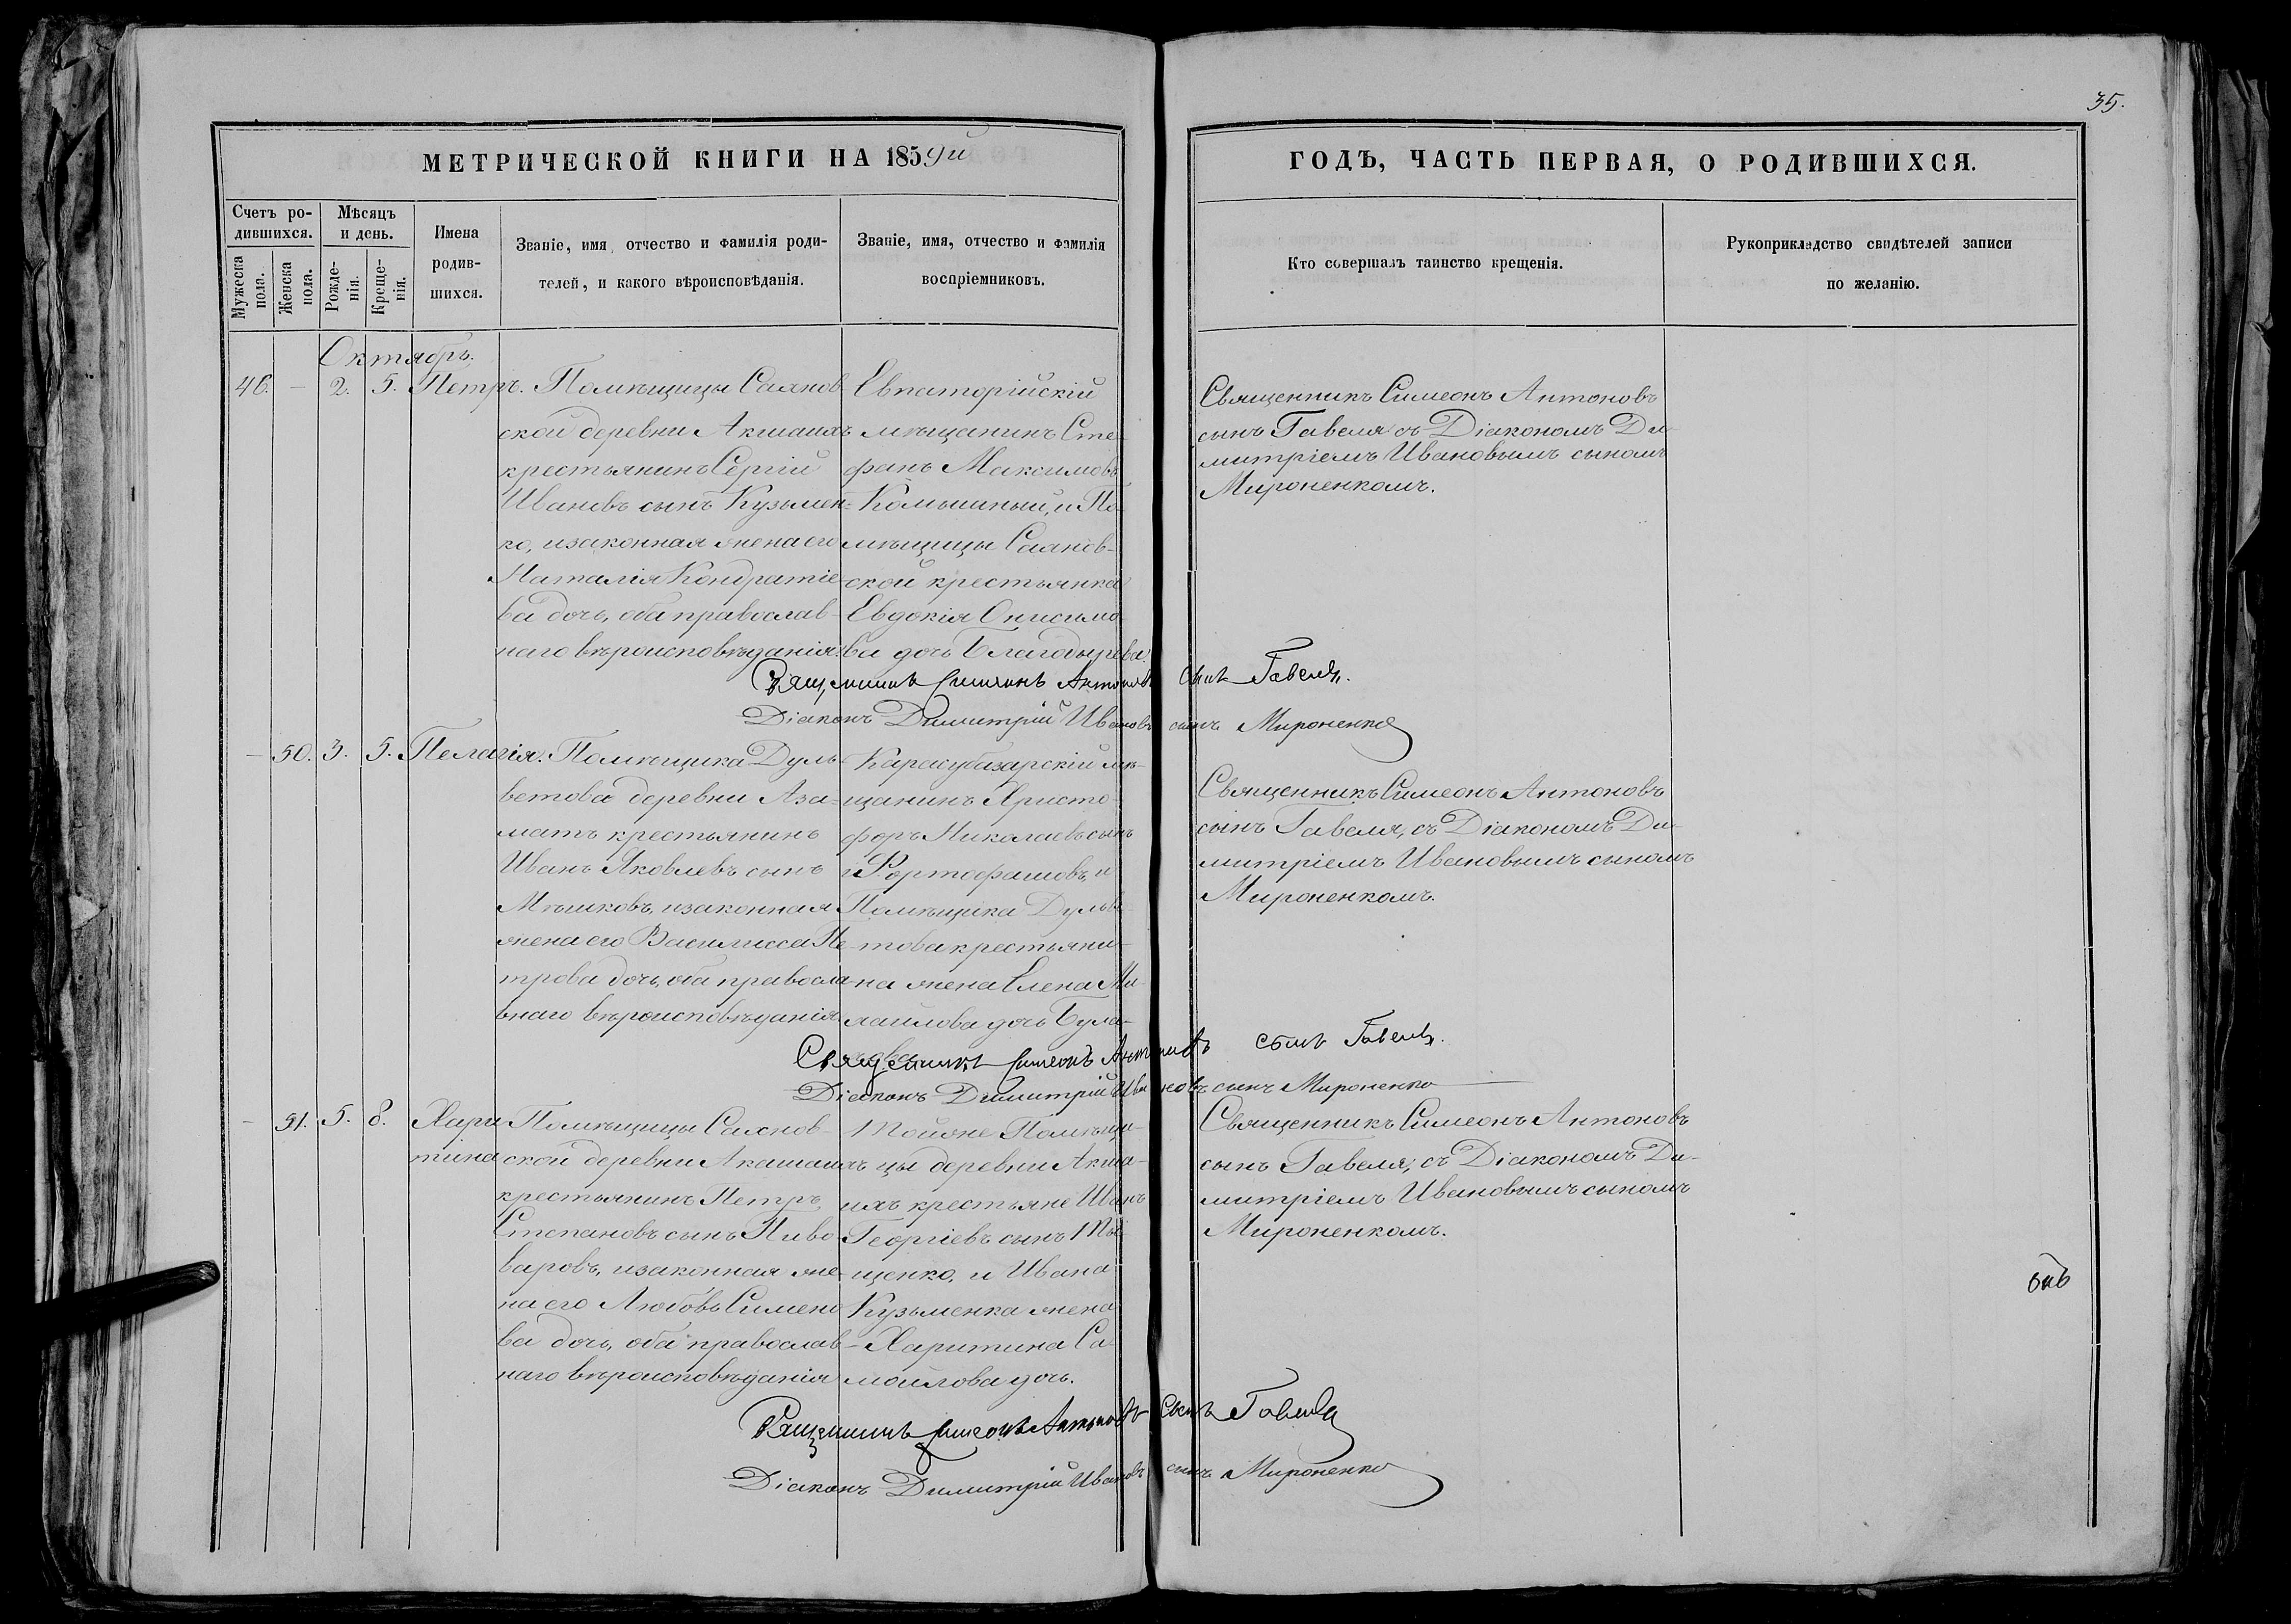 35.
МЕТРИЧЕСКОЙ КНИГИ НА 1859й
ГОДЪ, ЧАСТЬ ПЕРВАЯ, О РОДИВШИХСЯ.
Счетъ ро-
дившихся.
Мужеска
пола.
Женска
пола.
Мѣсяцъ
и день.
Рожде-
нія.
Креще-
нія.
Имена
родив-
шихся.
Званіе, имя, отчество и фамилія роди-
телей, и какого вѣроисповѣданія.
Званіе, имя, отчество и фамилія
воспріемниковъ.
Кто совершалъ таинство крещенія.
Рукоприкладство свидѣтелей записи
по желанію.
Октябрь.
46. — 2. 5. Петръ.
Помѣщицы Саянов
ской деревни Акшаихъ
крестьянинъ Сергій
Ивановъ сынъ Кузьмен=
ко, изаконная жена его
Наталія Кондратіе-
ва дочь, оба православ-
наго вѣроисповѣданія.
Евпаторійскій
мѣщанинъ Сте-
фанъ Максимовъ
Комышный, и По-
мѣщицы Саянов-
ской крестьянка
Евдокія Онисимо
ва дочь Благодырева.
Священникъ Симеонъ Антоновъ
сынъ Гавеля съ Діакономъ Ди-
митріемъ Ивановымъ сыномъ
Мироненкомъ.
Священникъ Симеонъ Антоновъ сынъ Гавеля.
Діаконъ Димитрій Ивановъ сынъ Мироненко
— 50. 3. 5. Пелагія.
Помѣщика Дуль-
ветова деревни Аза-
матъ крестьянинъ
Иванъ Яковлевъ сынъ
Мѣшковъ, изаконная
жена его Василисса Пе
трова дочь, оба правосла-
внаго вѣроисповѣданія
Карасубазарскій мѣ-
щанинъ Христо-
форъ Николаевъ сынъ
и
Помѣщика Дульве
това крестьяни-
на жена Елена Ми
хаилова дочь Була-
Священникъ Симеонъ Антоновъ
сынъ Гавеля, съ Діакономъ Ди-
митріемъ Ивановымъ сыномъ
Мироненкомъ.
Священникъ Симеонъ Антоновъ сынъ Гавеля.
Діаконъ Димитрій Ивановъ сынъ Мироненко
— 51. 5. 8. Хари
тина
Помѣщицы Саянов-
ской деревни Акшаихъ
крестьянинъ Петръ
Степановъ сынъ Пиво-
варовъ, изаконная же-
на его Любовь Симено
ва дочь, оба православ-
наго вѣроисповѣданія
Тойоже Помѣщи-
цы деревни Акша-
ихъ крестьяне Иванъ
Георгіевъ сынъ Ты-
щенко, и Ивана
Кузьменка жена
Харитина Са-
мойлова дочь.
Священникъ Симеонъ Антоновъ
сынъ Гавеля, съ Діакономъ Ди-
митріемъ Ивановымъ сыномъ
Мироненкомъ.
Священникъ Симеонъ Антоновъ сынъ Гавеля
Діаконъ Димитрій Ивановъ сынъ Мироненко